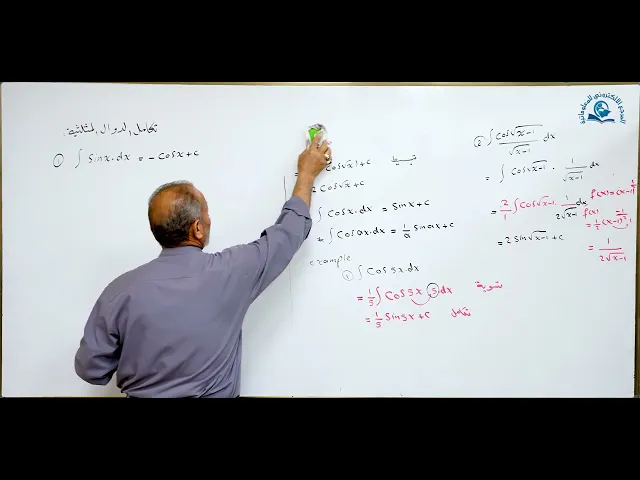 تكامل الدوال المثلثية:
① ∫ Sinx.dx = -Cosx+c
Cos√x)+c تبسيط
2 Cos√x+c
∫ Cosx.dx = Sinx+c
* ∫ Cosax.dx = 1/a Sinax+c
example
① ∫ Cos5x.dx
= 1/5 ∫ Cos5x.5.dx تسوية
= 1/5 Sin5x+c تكامل
② ∫ Cos√x-1 / √x-1 dx
= ∫ Cos√x-1 . 1/√x-1 dx
= 2/1 ∫ Cos√x-1 . 1/2√x-1 dx
= 2 Sin√x-1 +c
f(x) = (x-1)^1/2
f(x) = 1/2 (x-1)^-1/2 . 1
= 1/2√x-1
المنجم الإلكتروني للمعلوماتية